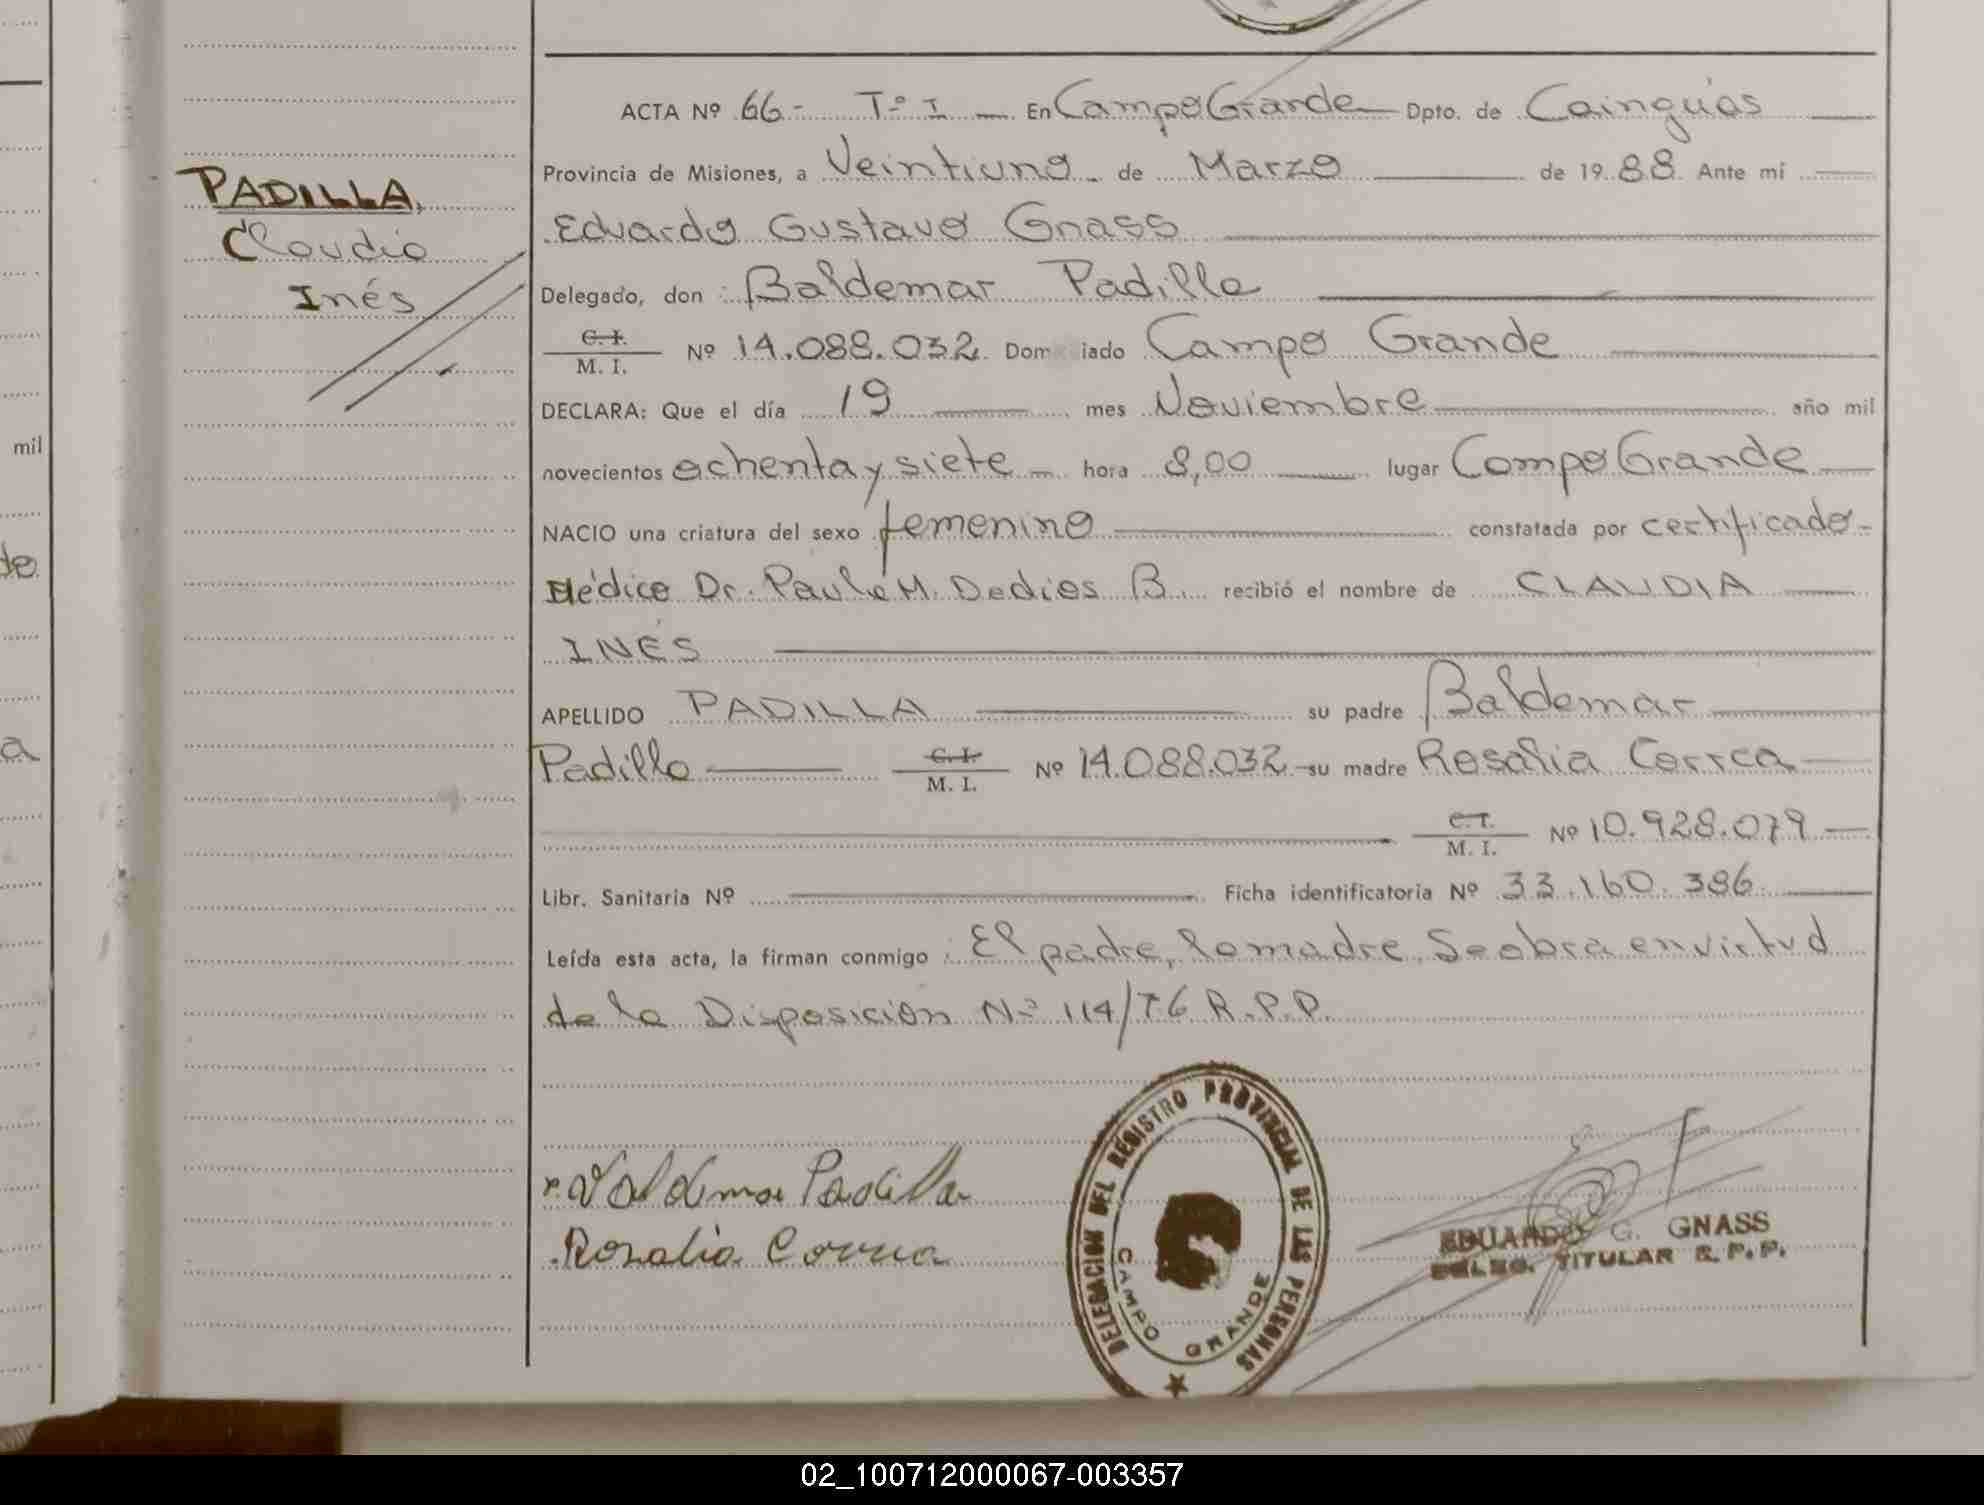 mil
de
a
PADILLA,
Claudia
Inés
ACTA Nº 66- Tº I — En Campo Grande Dpto. de Cainguás
Provincia de Misiones, a Veintiuno de Marzo de 1988 Ante mí
Eduardo Gustavo Gnass
Delegado, don : Baldemar Padilla
C.I.
M. I. Nº 14.088.032 Domiciliado Campo Grande
DECLARA: Que el día 19 mes Noviembre año mil
novecientos ochenta y siete hora 8,00 lugar Campo Grande
NACIO una criatura del sexo femenino constatada por certificado
Médico Dr. Paulé M. Dedios B. recibió el nombre de CLAUDIA
INÉS
APELLIDO PADILLA su padre Baldemar
Padilla C.I.
M. I. Nº 14.088.032 su madre Rosalia Correa
C.I.
M. I. Nº 10.928.079
Libr. Sanitaria Nº Ficha identificatoria Nº 33.160.386
Leída esta acta, la firman conmigo : El padre, la madre. Se obra en virtud
de la Disposición Nº 114/76 R.P.P.
Valdemar Padilla
Rosalia Correa
DELEGACION DEL REGISTRO PROVINCIAL DE LAS PERSONAS
CAMPO GRANDE
EDUARDO G. GNASS
DELEG. TITULAR R.P.P.
02_100712000067-003357